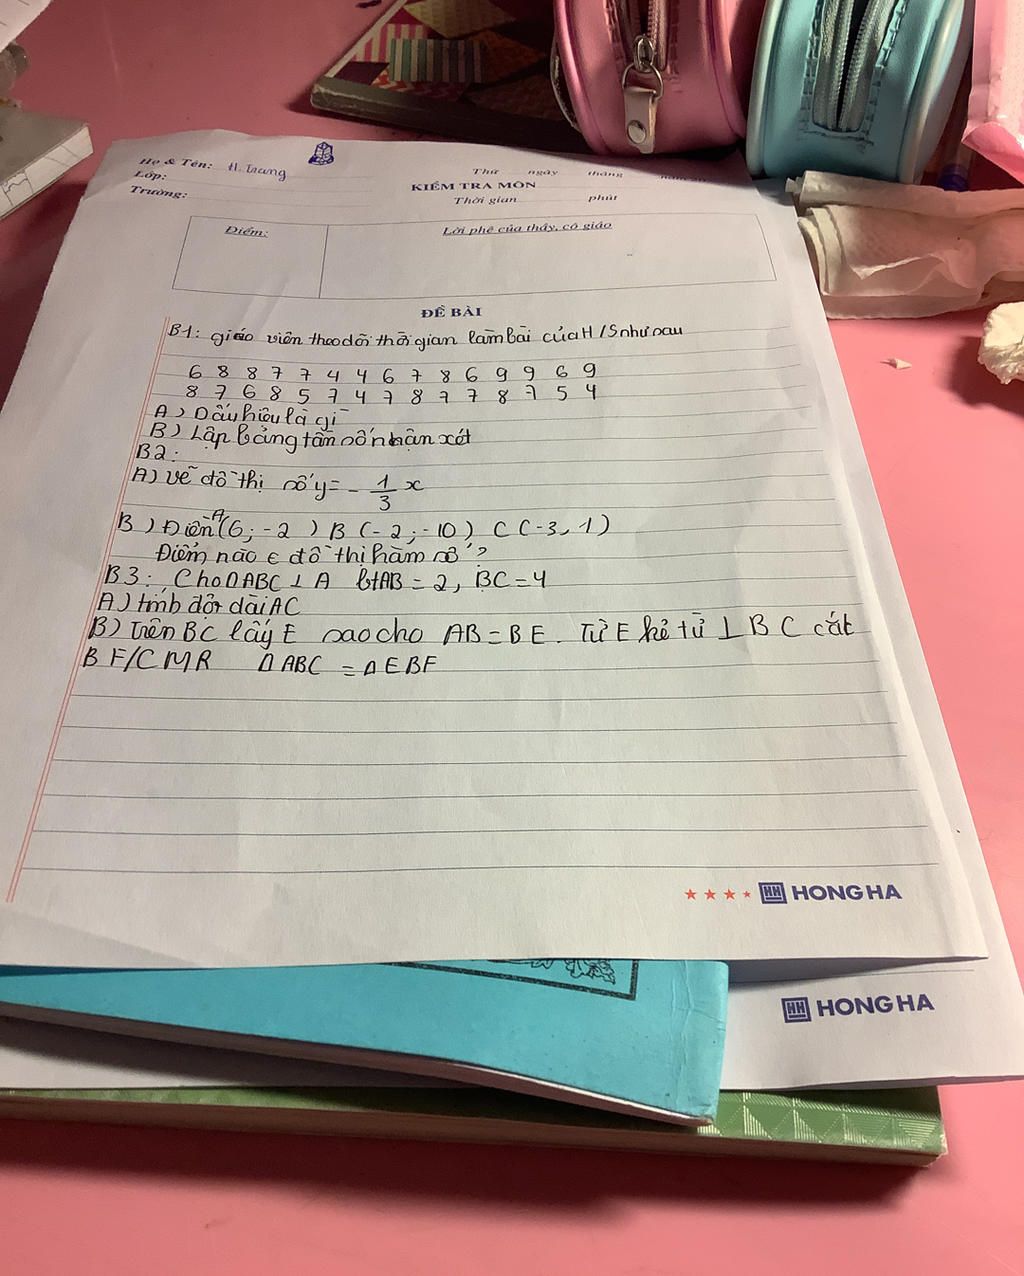 Họ & Tên: H. Trang
Lớp:
Trường:
Thứ ngày tháng
KIỂM TRA MÔN
Thời gian phút
Điểm:
Lời phê của thầy, cô giáo
ĐỀ BÀI
B1: giáo viên theo dõi thời gian làm bài của H/S như sau
6 8 8 7 7 4 4 6 7 8 6 9 9 6 9
8 7 6 8 5 7 4 7 8 7 7 8 7 5 4
A) Dấu hiệu là gì
B) Lập bảng tần số nhận xét
B2:
A) vẽ đồ thị số y = - 1/3 x
B) Điền A(6; -2) B (-2; -10) C (-3, 1)
Điểm nào ∈ đồ thị hàm số?
B3: Cho ΔABC ⊥ A bt AB = 2, BC = 4
A) tính dài AC
B) trên BC lấy E sao cho AB = BE. Từ E kẻ từ ⊥ BC cắt
BF/CMR ΔABC = ΔEBF
HONG HA
HONG HA